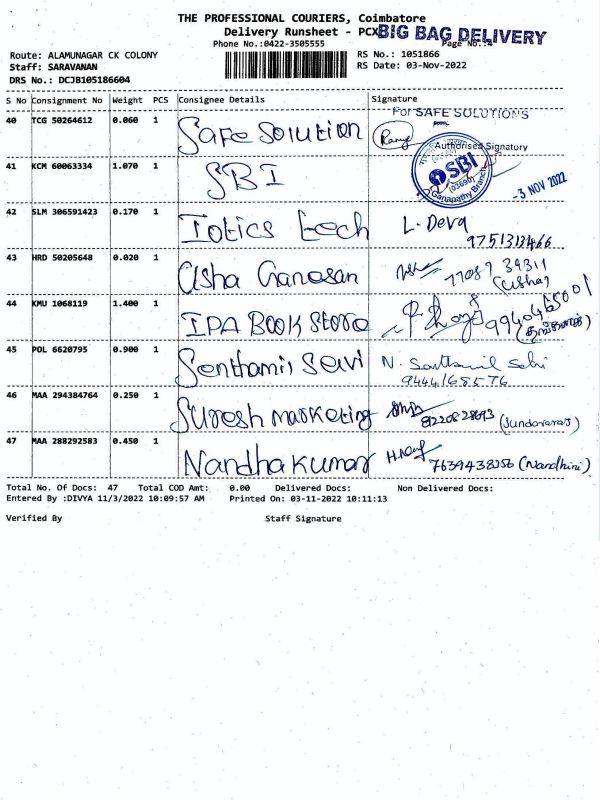 THE PROFESSIONAL COURIERS, Coimbatore
Delivery Runsheet - PCX BIG BAG DELIVERY
Phone No.:0422-3505555 Page No.:4
Route: ALAMUNAGAR CK COLONY RS No.: 1051866
Staff: SARAVANAN RS Date: 03-Nov-2022
DRS No.: DCJB105186604
S No Consignment No Weight PCS Consignee Details Signature
40 TCG 50264612 0.060 1 Safe Solution For SAFE SOLUTIONS
Authorised Signatory
41 KCM 60063334 1.070 1 SBI SBI (03690) Ganapathy Branch -3 NOV 2022
42 SLM 306591423 0.170 1 Iotics tech L. Deva
9751313466
43 HRD 50205648 0.020 1 Usha Ganesan 77089 39311
(Usha)
44 KMU 1068119 1.400 1 IPA BOOK Store 9940465001
45 POL 6620795 0.900 1 Senthamil Selvi N. Senthamil Selvi
9444168576
46 MAA 294384764 0.250 1 Suresh marketing (Sundararaj)
47 MAA 288292583 0.450 1 Nandha kumar (Nandhini)
Total No. Of Docs: 47 Total COD Amt: 0.00 Delivered Docs: Non Delivered Docs:
Entered By :DIVYA 11/3/2022 10:09:57 AM Printed On: 03-11-2022 10:11:13
Verified By Staff Signature